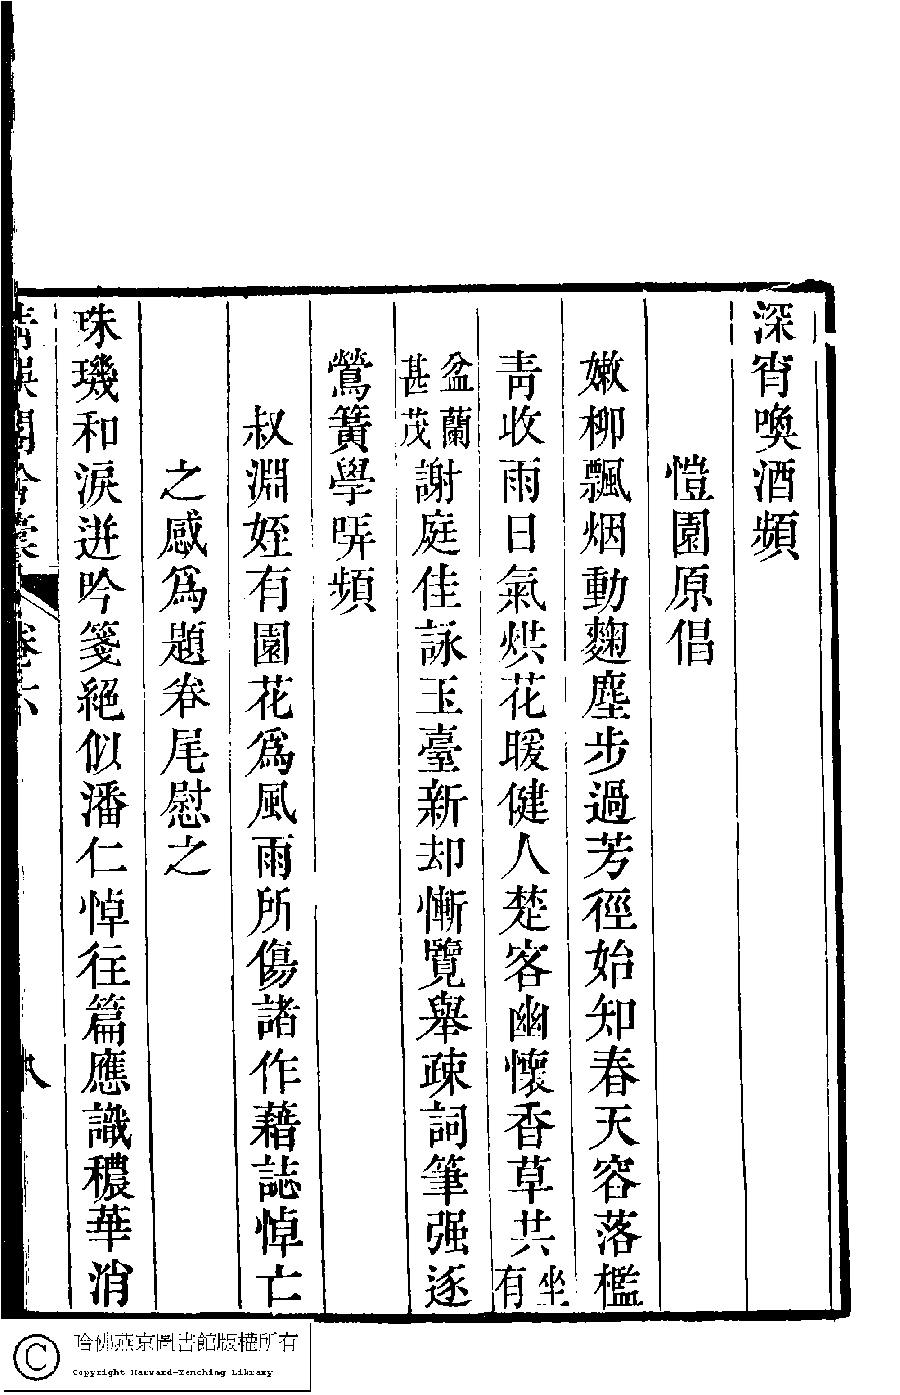 深宵喚酒頻
愷園原倡
嫩柳飄烟動麴塵步過芳徑始知春天容落檻
青收雨日氣烘花暖健人楚客幽懷香草共坐有
盆蘭甚茂謝庭佳詠玉臺新却慚覽舉疎詞筆强逐
鶯簧學哢頻
叔淵姪有園花爲風雨所傷諸作藉誌悼亡
之感爲題卷尾慰之
珠璣和淚迸吟箋絕似潘仁悼往篇應識穠華消
卷六
八
哈佛燕京圖書館版權所有
Copyright Harvard-Yenching Library